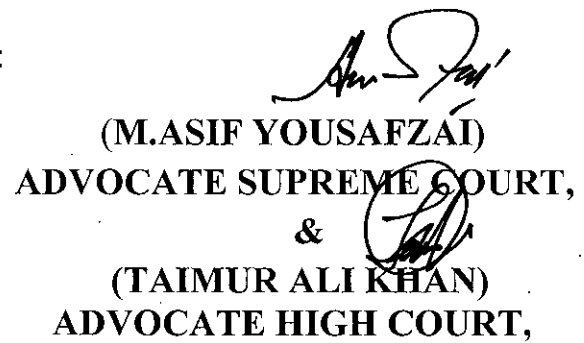 :
(M.ASIF YOUSAFZAI)
ADVOCATE SUPREME COURT,
&
(TAIMUR ALI KHAN)
ADVOCATE HIGH COURT,